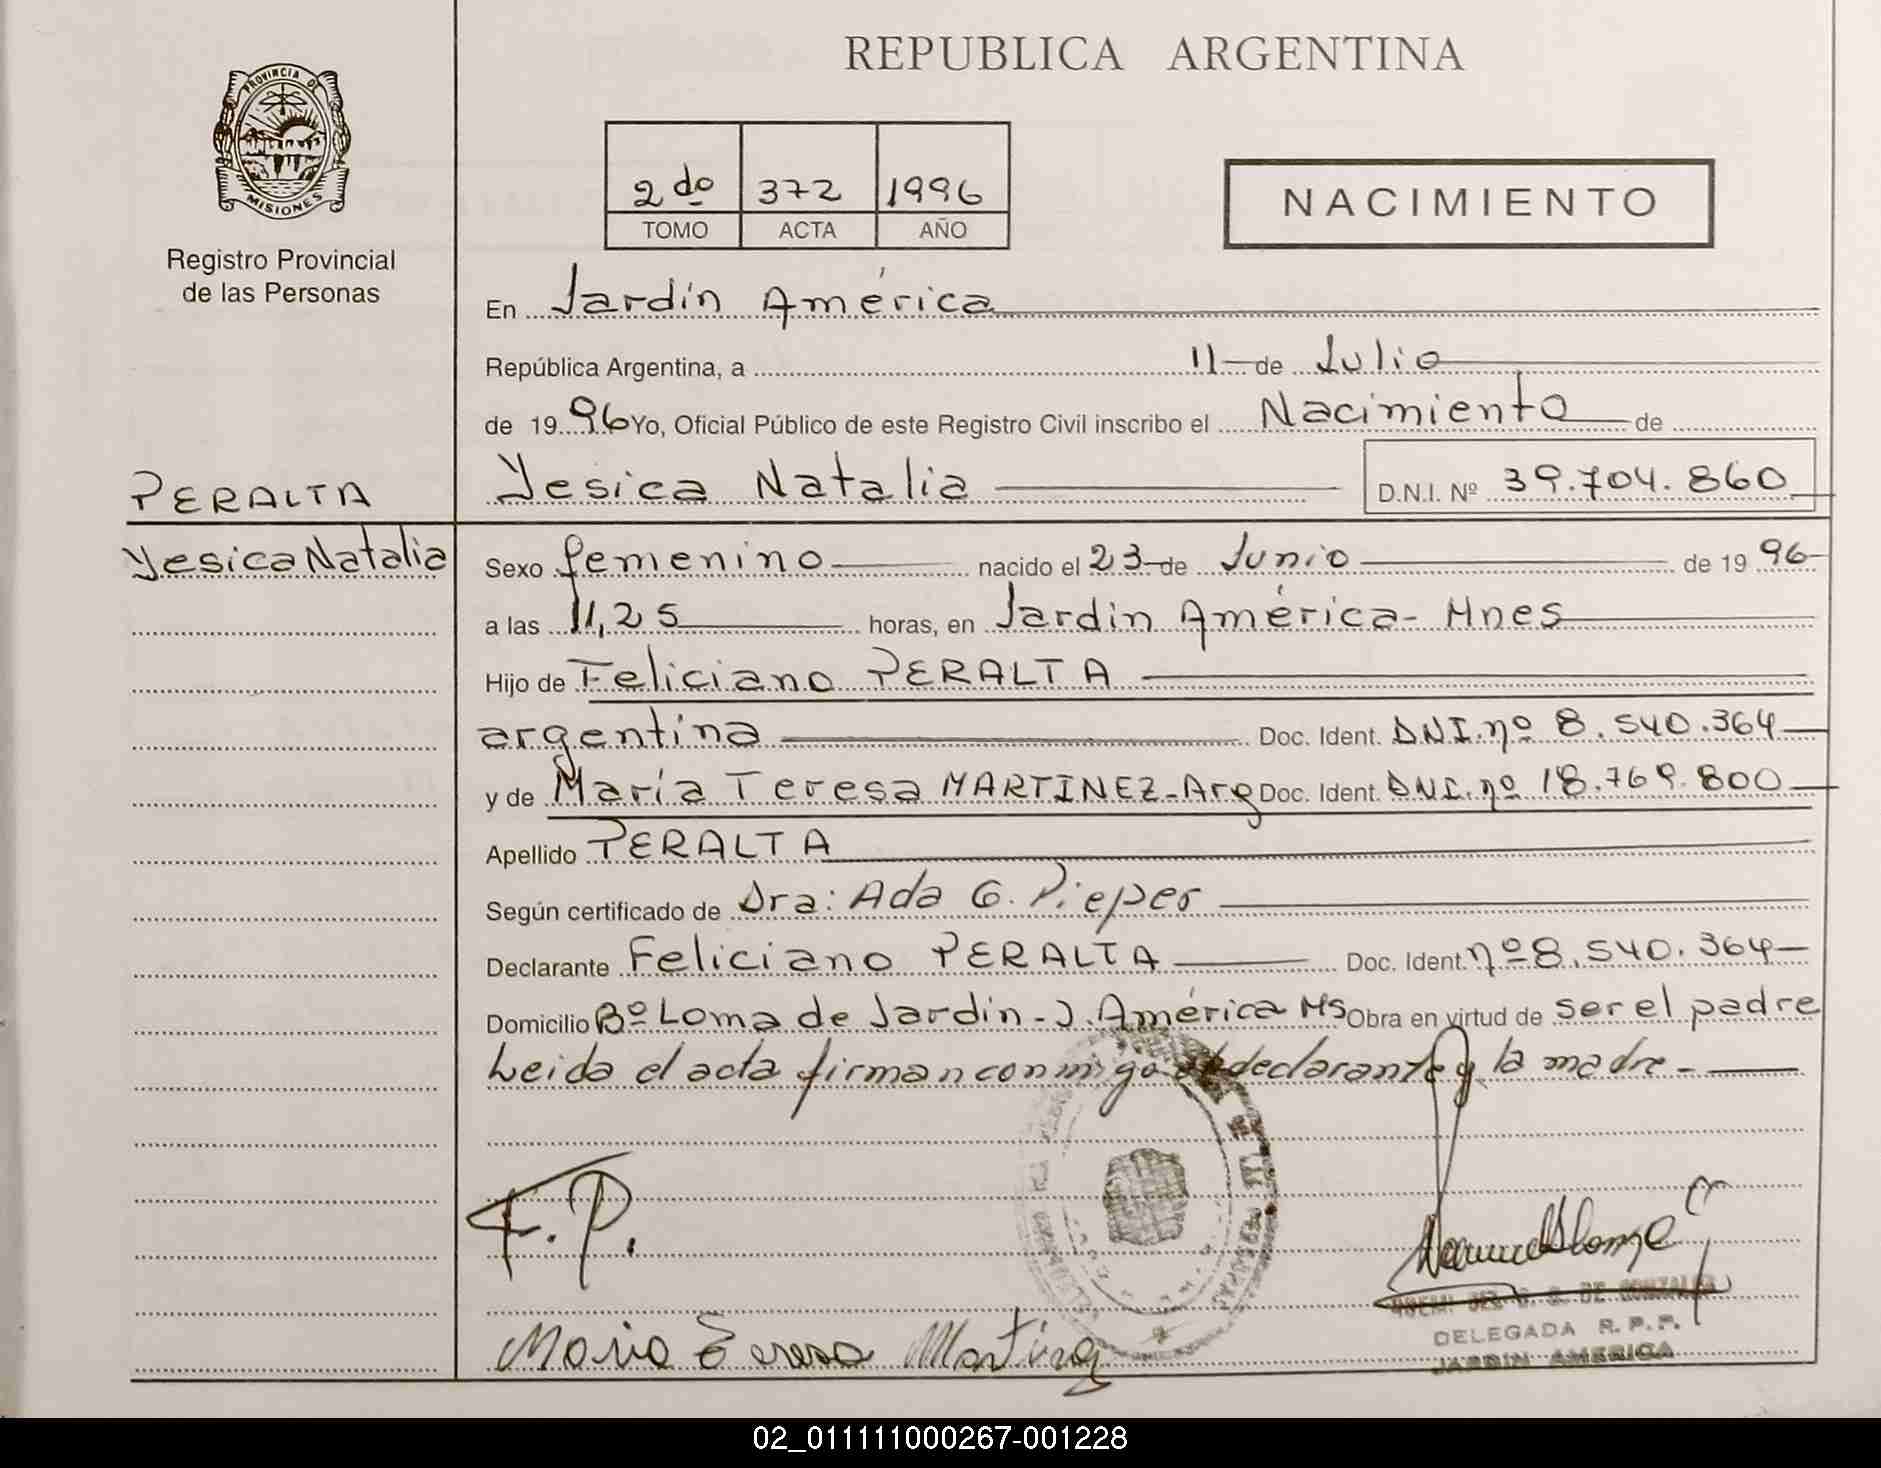 PROVINCIA DE
MISIONES
Registro Provincial
de las Personas
PERALTA
Yesica Natalia
REPUBLICA ARGENTINA
2do 372 1996
TOMO ACTA AÑO
NACIMIENTO
En Jardín América
República Argentina, a 11 de Julio
de 19 96 Yo, Oficial Público de este Registro Civil inscribo el Nacimiento de
Yesica Natalia D.N.I. Nº 39.704.860
Sexo femenino nacido el 23 de Junio de 19 96
a las 11,25 horas, en Jardín América - Mnes
Hijo de Feliciano PERALTA
argentina Doc. Ident. DNI. nº 8.540.364
y de María Teresa MARTINEZ - Arg Doc. Ident. DNI. nº 18.769.800
Apellido PERALTA
Según certificado de Dra: Ada G. Pieper
Declarante Feliciano PERALTA Doc. Ident. nº 8.540.364
Domicilio Bº Loma de Jardín - J. América Ms Obra en virtud de ser el padre
Leida el acta firman conmigo el declarante y la madre -
F.P.
DE GONZALEZ
DELEGADA R.P.P.
JARDIN AMERICA
Maria Teresa Martinez
02_011111000267-001228